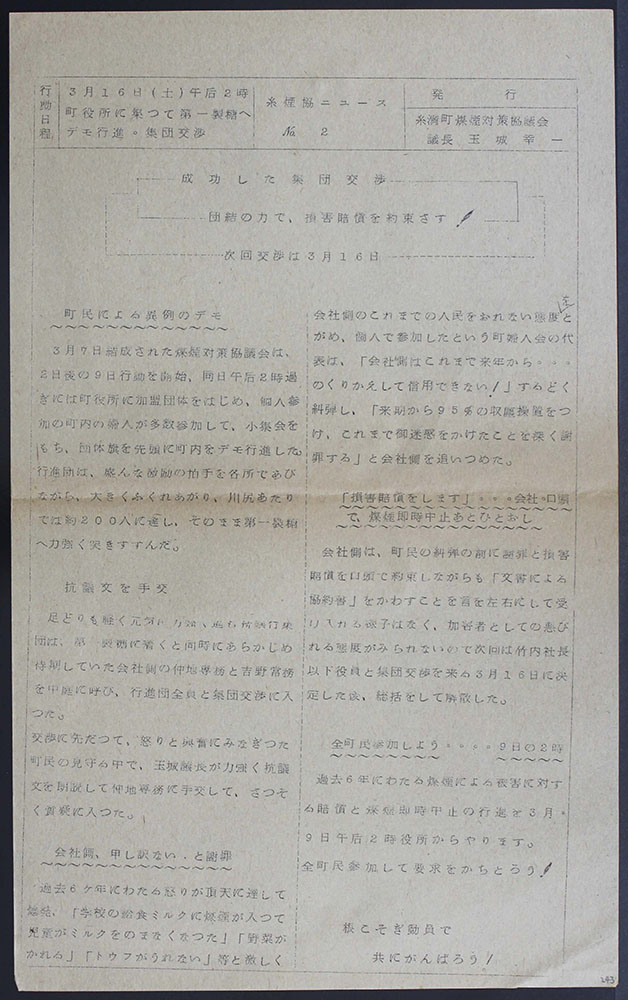 行動日程
3月16日(土)午后2時
町役所に集つて第一製糖へ
デモ行進。集団交渉
糸煤協ニュース
№ 2
発行
糸満町煤煙対策協議会
議長 玉城幸一
成功した集団交渉
団結の力で、損害賠償を約束さす!
次回交渉は3月16日
町民による異例のデモ
3月7日結成された煤煙対策協議会は、
2日後の9日行動を開始、同日午后2時過
ぎには町役所に加盟団体をはじめ、個人参
加の町内の婦人が多数参加して、小集会を
もち、団体旗を先頭に町内をデモ行進した。
行進団は、盛んな激励の拍手を各所であび
ながら、大きくふくれあがり、川尻あたり
では約200人に達し、そのまま第一製糖
へ力強く突きすすんだ。
抗議文を手交
足どりも軽く元気に力強く進む抗議行集
団は、第一製糖に着くと同時にあらかじめ
待期していた会社側の仲地専務と吉野常務
を中庭に呼び、行進団全員と集団交渉に入
つた。
交渉に先だつて、怒りと興奮にみなぎつた
町民の見守る中で、玉城議長が力強く抗議
文を朗読して仲地専務に手交して、さつそ
く質疑に入つた。
会社側、申し訳ない.と謝罪
過去6ケ年にわたる怒りが頂天に達して
爆発、「学校の給食ミルクに煤煙が入つて
児童がミルクをのまなくなつた」「野菜が
かれる」「トウフがうれない」等と激しく
会社側のこれまでの人民をおれない態度を
とがめ、個人で参加したという町婦人会の代
表は、「会社側はこれまで来年から。。。
のくりかえして信用できない!」するどく
糾弾し、「来期から95%の収塵操置をつ
け、これまで御迷惑をかけたことを深く謝
罪する」と会社側を追いつめた。
「損害賠償をします」。。。会社・口頭
で、煤煙即時中止あとひとおし
会社側は、町民の糾弾の前に謝罪と損害
賠償を口頭で約束しながらも「文書による
協約書」をかわすことを言を左右にして受
け入れる様子はなく、加害者としての悪び
れる態度がみられないので次回は竹内社長
以下役員と集団交渉を来る3月16日に決
定した後、総括をして解散した。
全町民参加しよう。。。。9日の2時
過去6年にわたる煤煙による被害に対す
る賠償と煤煙即時中止の行進を3月。
9日午后2時役所からやります。
全町民参加して要求をかちとろう!
根こそぎ動員で
共にがんばろう!
243